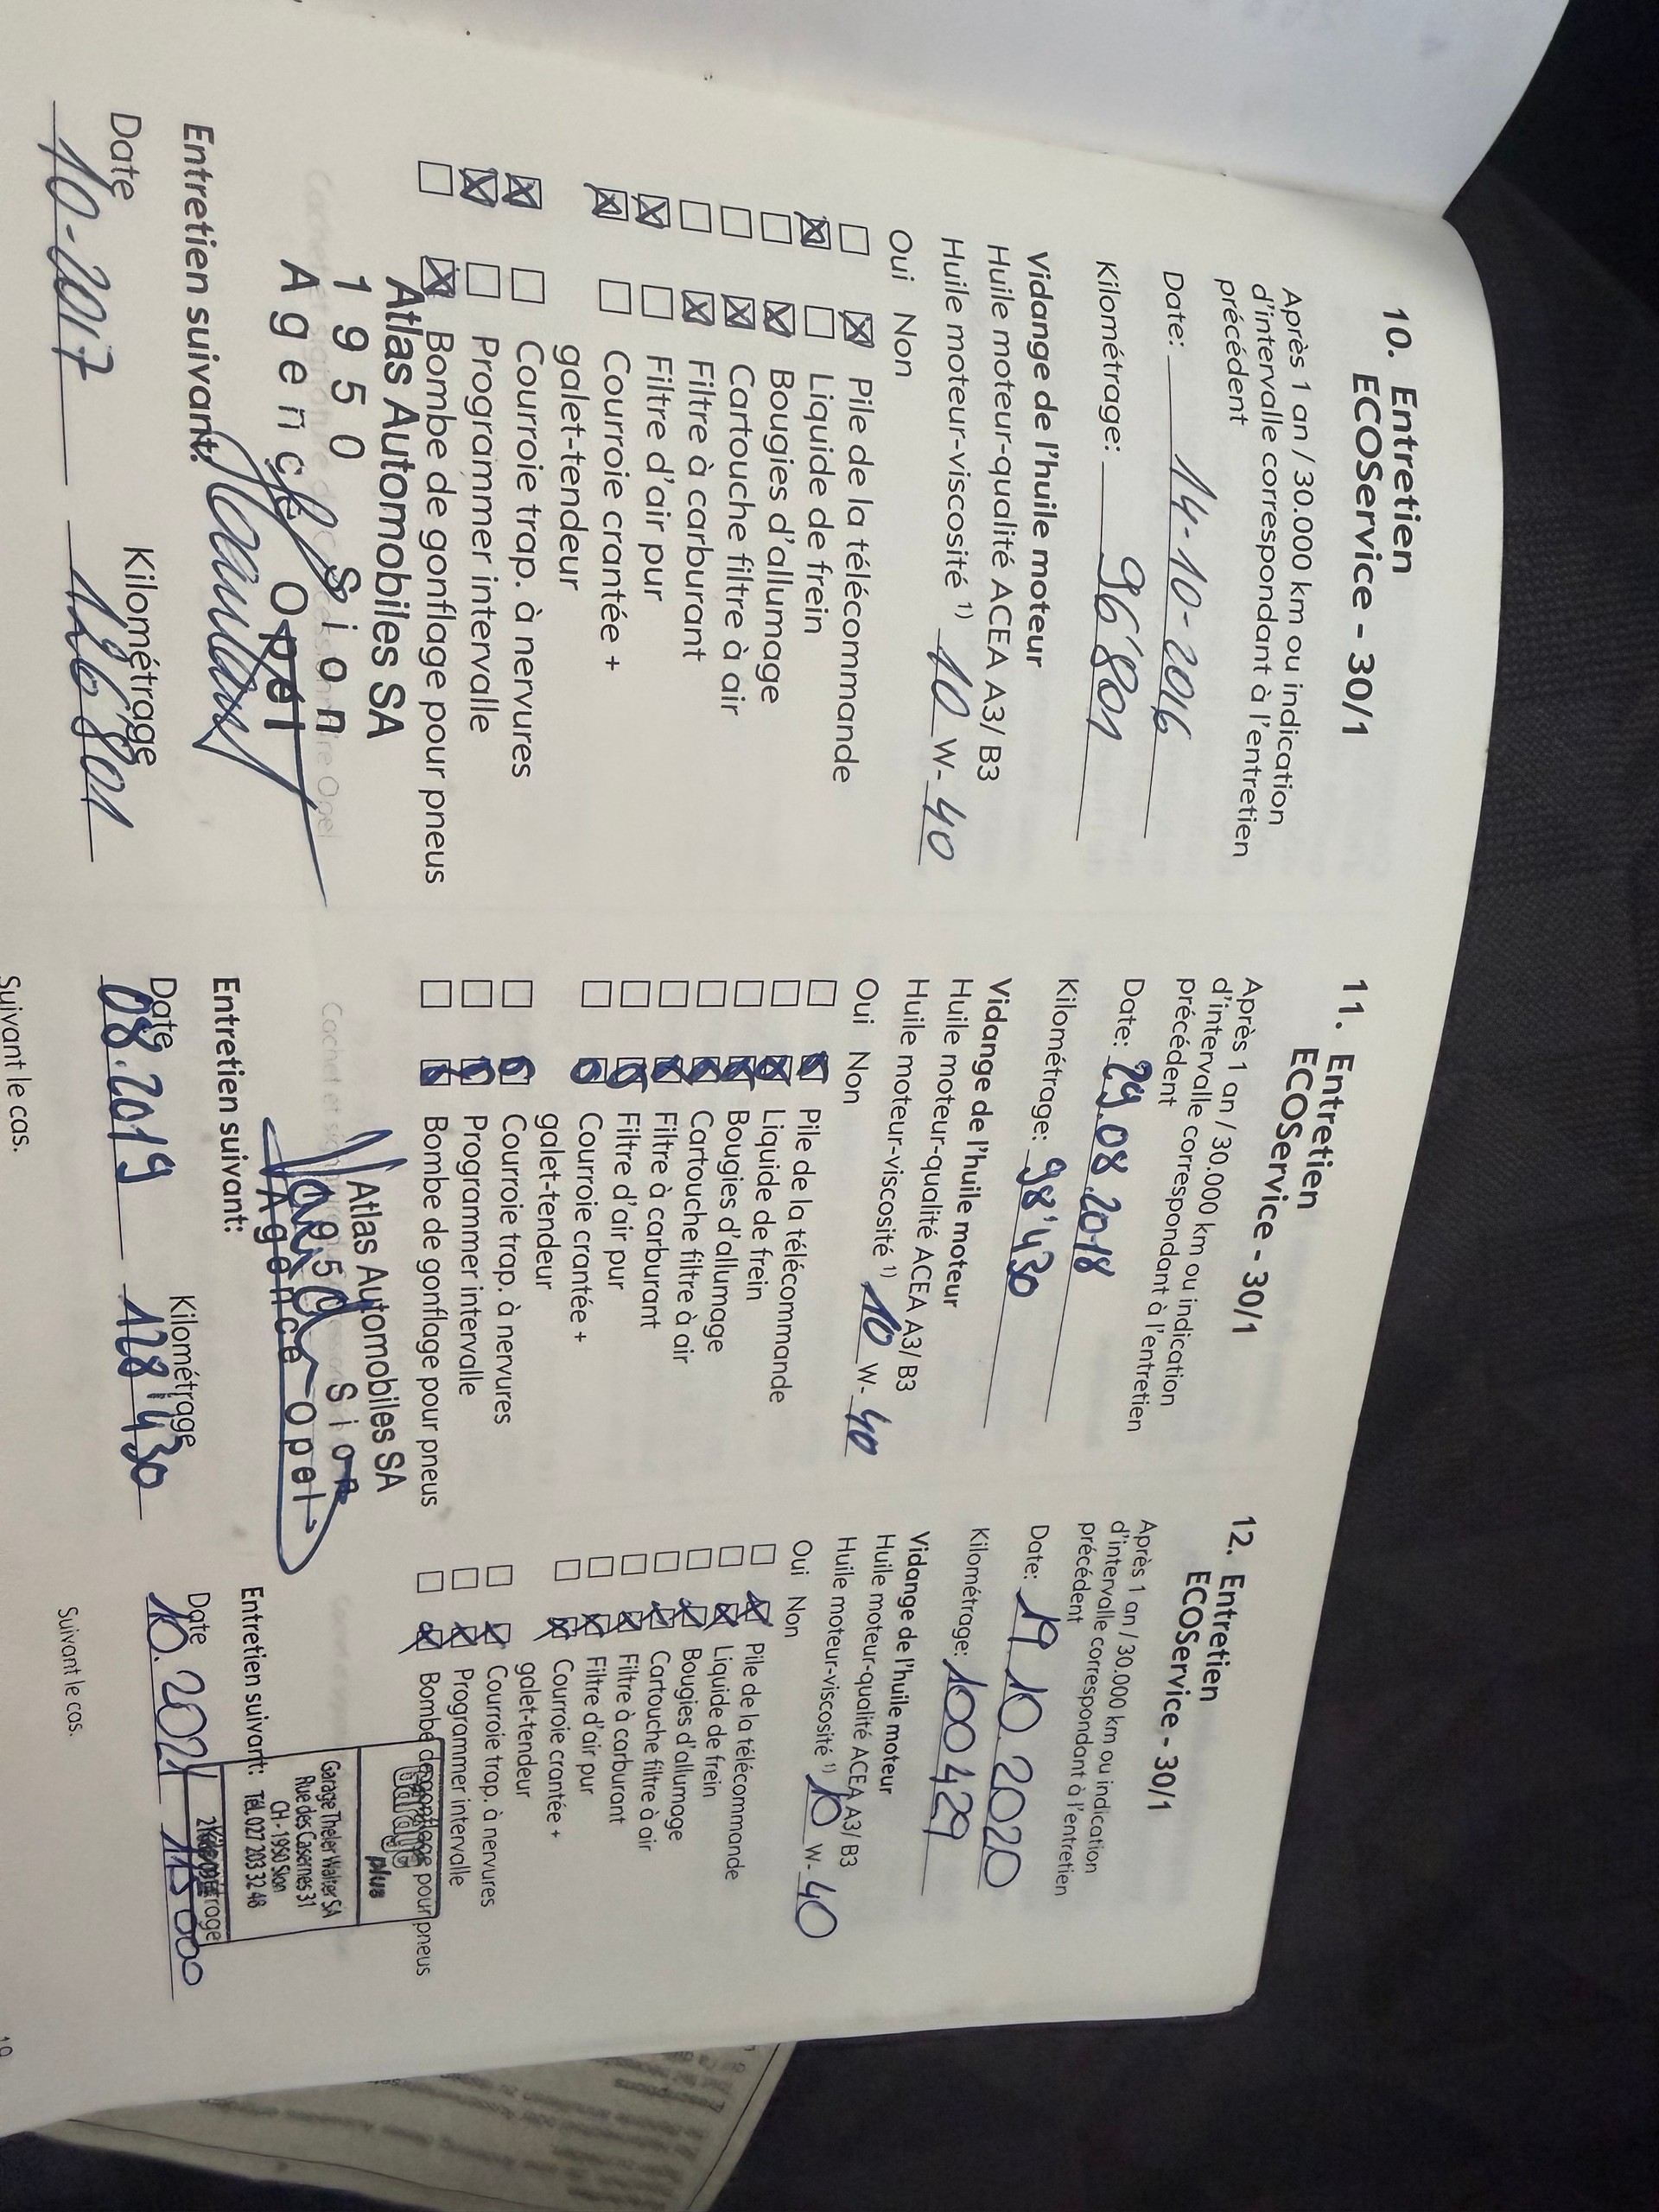 10. Entretien
ECOService - 30/1
Après 1 an / 30.000 km ou indication
d'intervalle correspondant à l'entretien
précédent
Date: 14-10-2016
Kilométrage: 96'801
Vidange de l'huile moteur
Huile moteur-qualité ACEA A3/ B3
Huile moteur-viscosité 1) 10 W- 40
Oui Non
Pile de la télécommande
Liquide de frein
Bougies d'allumage
Cartouche filtre à air
Filtre à carburant
Filtre d'air pur
Courroie crantée +
galet-tendeur
Courroie trap. à nervures
Programmer intervalle
Bombe de gonflage pour pneus
Atlas Automobiles SA
1950 Sion
Agence Opel
Entretien suivant:
Date Kilométrage
10-2017 126'801
11. Entretien
ECOService - 30/1
Après 1 an / 30.000 km ou indication
d'intervalle correspondant à l'entretien
précédent
Date: 29.08.2018
Kilométrage: 98'430
Vidange de l'huile moteur
Huile moteur-qualité ACEA A3/ B3
Huile moteur-viscosité 1) 10 W- 40
Oui Non
Pile de la télécommande
Liquide de frein
Bougies d'allumage
Cartouche filtre à air
Filtre à carburant
Filtre d'air pur
Courroie crantée +
galet-tendeur
Courroie trap. à nervures
Programmer intervalle
Bombe de gonflage pour pneus
Atlas Automobiles SA
1950 Sion
Agence Opel
Entretien suivant:
Date Kilométrage
08.2019 128'430
Suivant le cas.
12. Entretien
ECOService - 30/1
Après 1 an / 30.000 km ou indication
d'intervalle correspondant à l'entretien
précédent
Date: 19.10.2020
Kilométrage: 100429
Vidange de l'huile moteur
Huile moteur-qualité ACEA A3/ B3
Huile moteur-viscosité 1) 10 W- 40
Oui Non
Pile de la télécommande
Liquide de frein
Bougies d'allumage
Cartouche filtre à air
Filtre à carburant
Filtre d'air pur
Courroie crantée +
galet-tendeur
Courroie trap. à nervures
Programmer intervalle
Bombe de gonflage pour pneus
Garage
plus
Garage Theler Walter SA
Rue des Casernes 31
CH - 1950 Sion
Tél. 027 203 32 48
Entretien suivant:
Date Kilométrage
10.2021 115000
Suivant le cas.
19